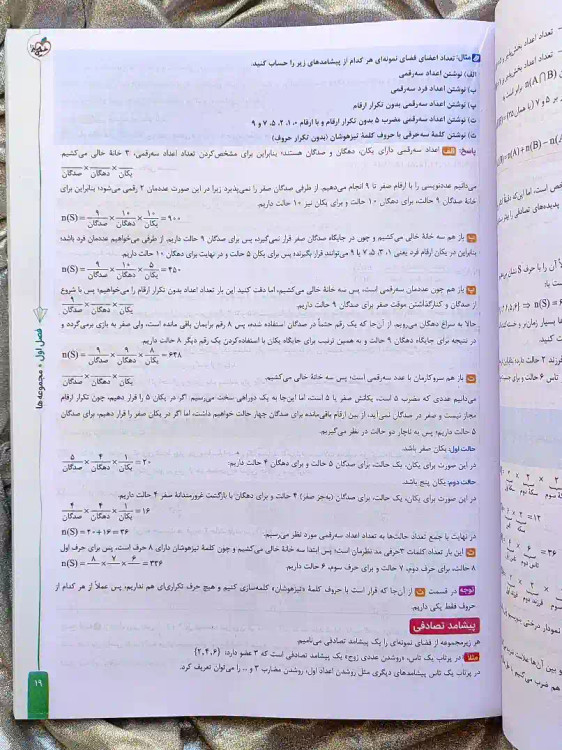 مثال: تعداد اعضای فضای نمونه‌ای هر کدام از پیشامدهای زیر را حساب کنید.
الف) نوشتن اعداد سه‌رقمی
ب) نوشتن اعداد فرد سه‌رقمی
پ) نوشتن اعداد سه‌رقمی بدون تکرار ارقام
ت) نوشتن اعداد سه‌رقمی مضرب ۵ بدون تکرار ارقام و با ارقام ۰، ۱، ۲، ۵، ۷ و ۹
ث) نوشتن کلمهٔ سه‌حرفی با حروف کلمهٔ تیزهوشان (بدون تکرار حروف)
پاسخ: الف اعداد سه‌رقمی دارای یکان، دهگان و صدگان هستند؛ بنابراین برای مشخص‌کردن تعداد اعداد سه‌رقمی، ۳ خانهٔ خالی می‌کشیم
صدگان × دهگان × یکان
می‌دانیم عددنویسی را با ارقام صفر تا ۹ انجام می‌دهیم. از طرفی صدگان صفر را نمی‌پذیرد زیرا در این صورت عددمان ۲ رقمی می‌شود؛ بنابراین برای
خانهٔ صدگان ۹ حالت، برای دهگان ۱۰ حالت و برای یکان نیز ۱۰ حالت داریم.
n(S) = ۹/صدگان × ۱۰/دهگان × ۱۰/یکان = ۹۰۰
ب باز هم سه خانهٔ خالی می‌کشیم و چون در جایگاه صدگان صفر قرار نمی‌گیرد، پس برای صدگان ۹ حالت داریم. از طرفی می‌خواهیم عددمان فرد باشد؛
بنابراین در یکان ارقام فرد یعنی ۱، ۳، ۵، ۷ یا ۹ می‌توانند قرار بگیرند؛ پس برای یکان ۵ حالت و در نهایت برای دهگان ۱۰ حالت داریم.
n(S) = ۹/صدگان × ۱۰/دهگان × ۵/یکان = ۴۵۰
پ باز هم چون عددمان سه‌رقمی است، پس سه خانهٔ خالی می‌کشیم، اما دقت کنید این بار تعداد اعداد بدون تکرار ارقام را می‌خواهیم؛ پس با شروع
از صدگان و کنارگذاشتن موقت صفر برای صدگان ۹ حالت داریم.
صدگان × دهگان × یکان
حالا به سراغ دهگان می‌رویم. از آن‌جا که یک رقم حتماً در صدگان استفاده شده، پس ۸ رقم برایمان باقی مانده است، ولی صفر به بازی برمی‌گردد و
در نتیجه برای جایگاه دهگان ۹ حالت و به همین ترتیب برای جایگاه یکان با استفاده‌کردن یک رقم دیگر ۸ حالت داریم.
n(S) = ۹/صدگان × ۹/دهگان × ۸/یکان = ۶۴۸
ت باز هم سروکارمان با عدد سه‌رقمی است؛ پس سه خانهٔ خالی می‌کشیم.
می‌دانیم عددی که مضرب ۵ است، یکانش صفر یا ۵ است، اما این‌جا به یک دوراهی سخت می‌رسیم. اگر در یکان ۵ را قرار دهیم، چون تکرار ارقام
مجاز نیست و صفر در صدگان نمی‌آید، از بین ارقام باقی‌مانده برای صدگان چهار حالت خواهیم داشت، اما اگر در یکان صفر را قرار دهیم، برای صدگان
۵ حالت داریم؛ پس به ناچار دو حالت در نظر می‌گیریم.
حالت اول: یکان صفر باشد.
در این صورت برای یکان، یک حالت، برای صدگان ۵ حالت و برای دهگان ۴ حالت داریم:
۵/صدگان × ۴/دهگان × ۱/یکان = ۲۰
حالت دوم: یکان پنج باشد.
در این صورت برای یکان، یک حالت، برای صدگان (به‌جز صفر) ۴ حالت و برای دهگان با بازگشت غرورمندانهٔ صفر ۴ حالت داریم.
۴/صدگان × ۴/دهگان × ۱/یکان = ۱۶
در نهایت با جمع تعداد حالت‌ها به تعداد اعداد سه‌رقمی مورد نظر می‌رسیم.
n(S) = ۲۰ + ۱۶ = ۳۶
ث این بار تعداد کلمات ۳حرفی مد نظرمان است؛ پس ابتدا سه خانهٔ خالی می‌کشیم و چون کلمهٔ تیزهوشان دارای ۸ حرف است، پس برای حرف اول
۸ حالت، برای حرف دوم، ۷ حالت و برای حرف سوم، ۶ حالت داریم.
n(S) = ۸ × ۷ × ۶ = ۳۳۶
توجه در قسمت ث از آن‌جا که قرار است با حروف کلمهٔ «تیزهوشان» کلمه‌سازی کنیم و هیچ حرف تکراری‌ای هم نداریم، پس عملاً از هر کدام از
حروف فقط یکی داریم.
پیشامد تصادفی
هر زیرمجموعه از فضای نمونه‌ای را یک پیشامد تصادفی می‌نامیم
مثلاً در پرتاب یک تاس، «روشدن عددی زوج» یک پیشامد تصادفی است که ۳ عضو دارد: {۲,۴,۶}
در پرتاب یک تاس پیشامدهای دیگری مثل روشدن اعداد اول، روشدن مضارب ۳ و ... را می‌توان تعریف کرد.
فصل اول • مجموعه‌ها
۱۹